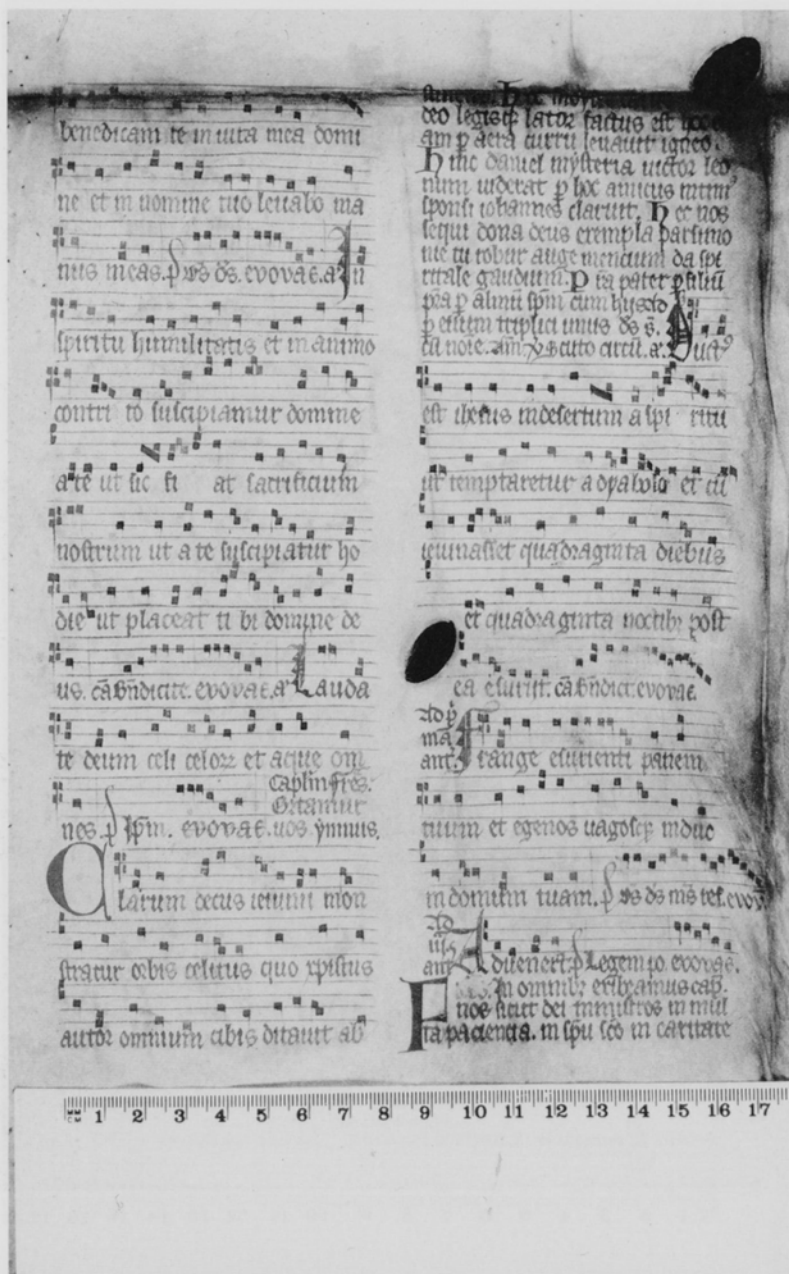 benedicam te in uita mea domi
ne et in nomine tuo leuabo ma
nus meas. p̄s. Ds̄ ds̄. evovae. a᷒ In
spiritu humilitatis et in animo
contri to suscipiamur domine
a te ut sic fi at sacrificium
nostrum ut a te suscipiatur ho
die ut placeat ti bi domine de
us. cā. Bn̄dicite. evovae. a᷒ Lauda
te deum celi celorꝝ et aque om
Caplm̄ frēs.
nes. p̄ ip̄m. evovae. uos ymnus.
Clarum decus ieiunii mon
stratur orbis celitus quo xp̄istus
autor omnium cibis ditauit ab
deo legisqꝫ lator factus est
am ꝑ aera curru leuauit igneo.
Hinc daniel mysteria uictor leo
num uiderat ꝑ hoc amicus intimi
sponsi iohannes claruit. Hec nos
sequi dona deus exempla parsimo
nie tu robur auge mencium da spi
ritale gaudium. P̄ta pater ꝑ filiū
p̄ta ꝑ almū sp̄m cum hys
ꝑ eisum triplici unus ds̄
cū noīe. am̄. ℣ Scuto circū. a᷒. Duct⁹
est ihesus in desertum a spi ritu
ut temptaretur a dyabolo et cū
ieiunasset quadraginta diebus
et quadraginta noctibꝫ post
ea esuriit. cā. Bn̄dict. evovae.
Ad p̄
mā
ant᷒ Frange esurienti panem
tuum et egenos uagosqꝫ induc
in domum tuam. p̄s Ds̄ ds̄ ms̄ res. evov
Ad
iij
ant᷒ Aduenert̄ p̄s Legem po. evovae.
In omnibꝫ exibeamus cap̄.
nos sicut dei ministros in mul
ta paciencia. in sp̄u sc̄o in caritate
1 2 3 4 5 6 7 8 9 10 11 12 13 14 15 16 17